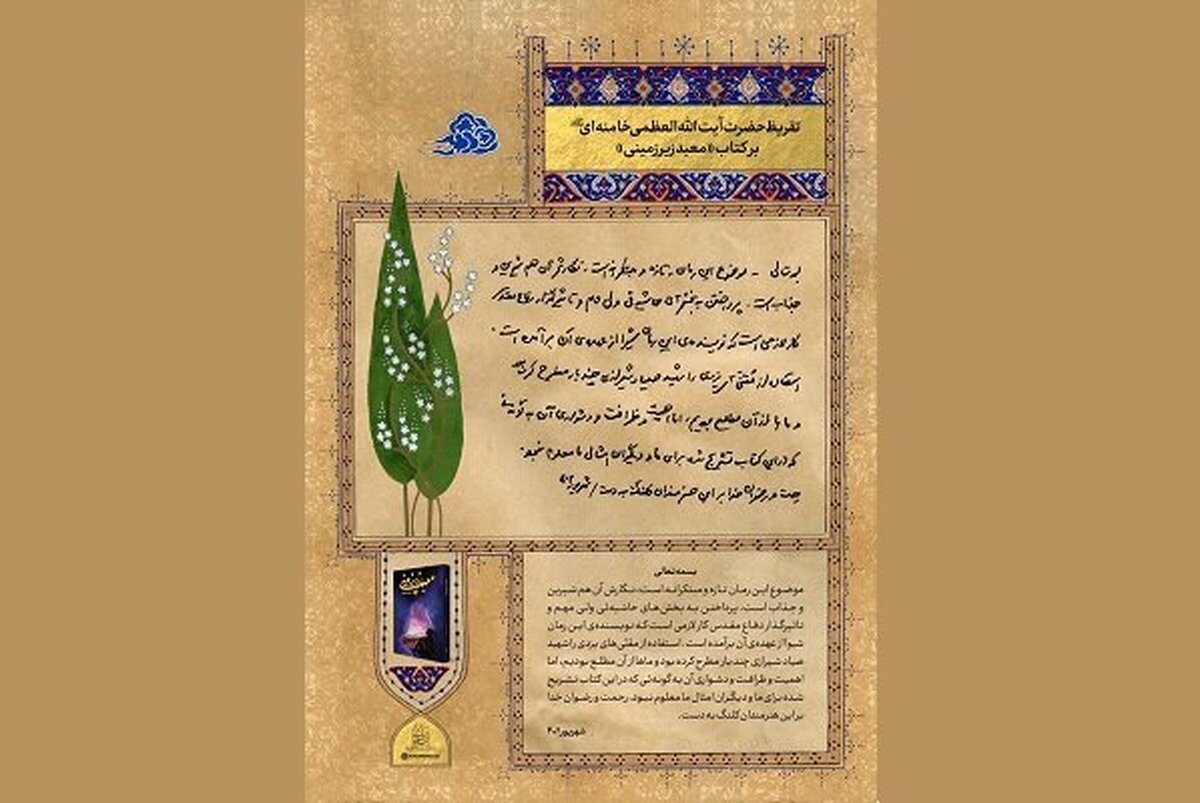 تقریظ حضرت آیت الله العظمی خامنه‌ای
بر کتاب «معبد زیرزمینی»
بسمه‌تعالی - موضوع این رمان، تازه و مبتکرانه است. نگارش آن هم شیرین و
جذاب است. پرداختن به بخشهای حاشیه‌ئی ولی مهم و تأثیرگذار دفاع مقدس
کار لازمی است که نویسنده‌ی این رمان شیوا از عهده‌ی آن برآمده است.
استفاده از مقنّی‌های یزدی را شهید صیاد شیرازی چند بار مطرح کرده بود
و ماها از آن مطلع بودیم، اما اهمیت و ظرافت و دشواری آن به گونه‌ئی
که در این کتاب تشریح شده برای ما و دیگران امثال ما معلوم نبود.
رحمت و رضوان خدا بر این هنرمندان کلنگ به دست / شهریور
معبد زیرزمینی
بسمه‌تعالی
موضوع این رمان تازه و مبتکرانه است، نگارش آن هم شیرین
و جذاب است. پرداختن به بخش‌های حاشیه‌ئی ولی مهم و
تاثیرگذار دفاع مقدس کار لازمی است که نویسنده‌ی این رمان
شیوا از عهده‌ی آن برآمده است. استفاده از مقنّی‌های یزدی را شهید
صیاد شیرازی چند بار مطرح کرده بود و ماها از آن مطلع بودیم، اما
اهمیت و ظرافت و دشواری آن به گونه‌ئی که در این کتاب تشریح
شده برای ما و دیگران امثال ما معلوم نبود. رحمت و رضوان خدا
بر این هنرمندان کلنگ به دست.
شهریور ۴۰۲